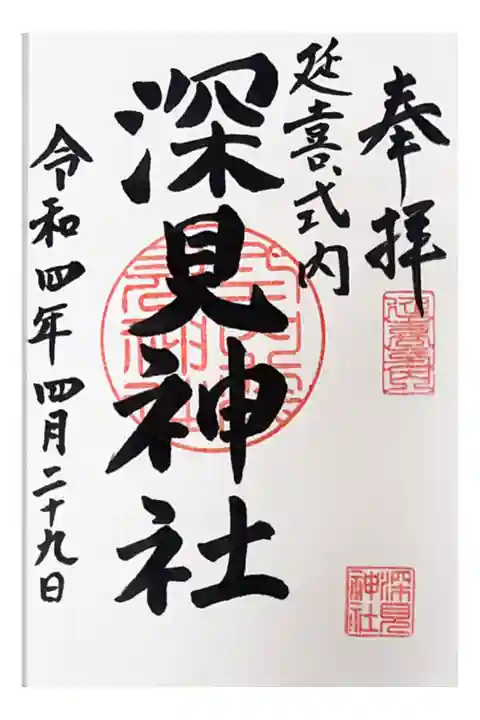 奉拝
延喜式内
深見神社
令和四年四月二十九日
延喜式内
深見神社